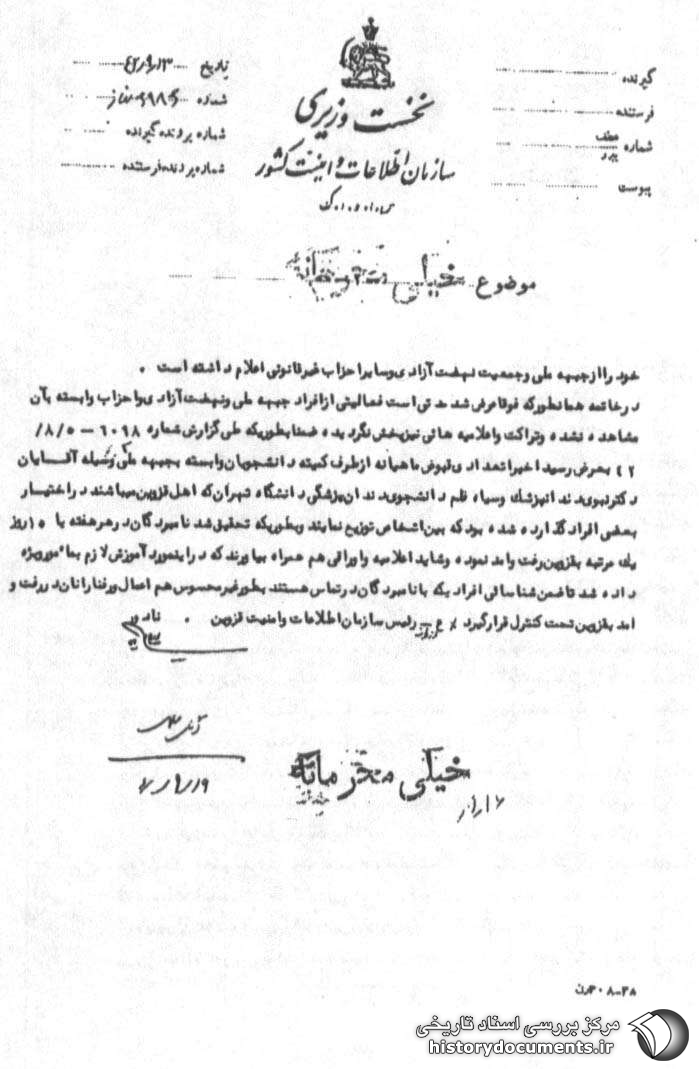 گیرنده
فرستنده
شماره عطف پیرو
پیوست
نخست وزیری
سازمان اطلاعات و امنیت کشور
س.ا.و.ا.ک
تاریخ
شماره
شماره پرونده گیرنده
شماره پرونده فرستنده
موضوع خیلی محرمانه
خود را از جبهه ملی و جمعیت نهضت آزادی و سایر احزاب غیرقانونی اعلام داشته است .
در خاتمه همانطور که فوقا عرض شد مدتی است فعالیتی از افراد جبهه ملی و نهضت آزادی و احزاب وابسته بآن
مشاهده نشده و تراکت و اعلامیه هائی نیز پخش نگردیده ضمنا بطوریکه طی گزارش شماره ۶۰۹۸ – ۸/۵/
۴۲ بعرض رسید اخیرا تعدادی قبوض ماهیانه از طرف کمیته دانشجویان وابسته بجبهه ملی وسیله آقایان
دکتر نبوی دندانپزشک و سیاه قلم دانشجوی دندان پزشکی دانشگاه تهران که اهل قزوین میباشند در اختیار
بعضی افراد گذارده شده بود که بین اشخاص توزیع نمایند و بطوریکه تحقیق شد نامبردگان در هر هفته یا ۱۵ روز
یک مرتبه بقزوین رفت و آمد نموده و شاید اعلامیه و اوراقی هم همراه بیاورند که در اینمورد آموزش لازم بمأمور ویژه
داده شد تا ضمن شناسائی افرادیکه با نامبردگان در تماس هستند بطور غیر محسوس هم اعمال و رفتار آنان در رفت و
آمد بقزوین تحت کنترل قرار گیرد /ع رئیس سازمان اطلاعات و امنیت قزوین .
خیلی محرمانه
۳۸-۳۰۸
مرکز بررسی اسناد تاریخی
historydocuments.ir